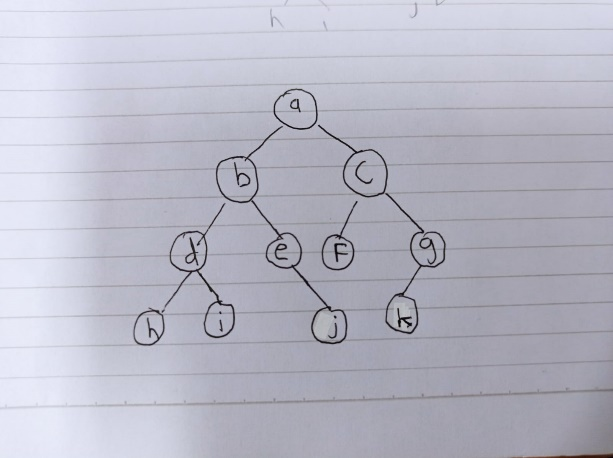 h i j
a
b C
d e F g
h i j k